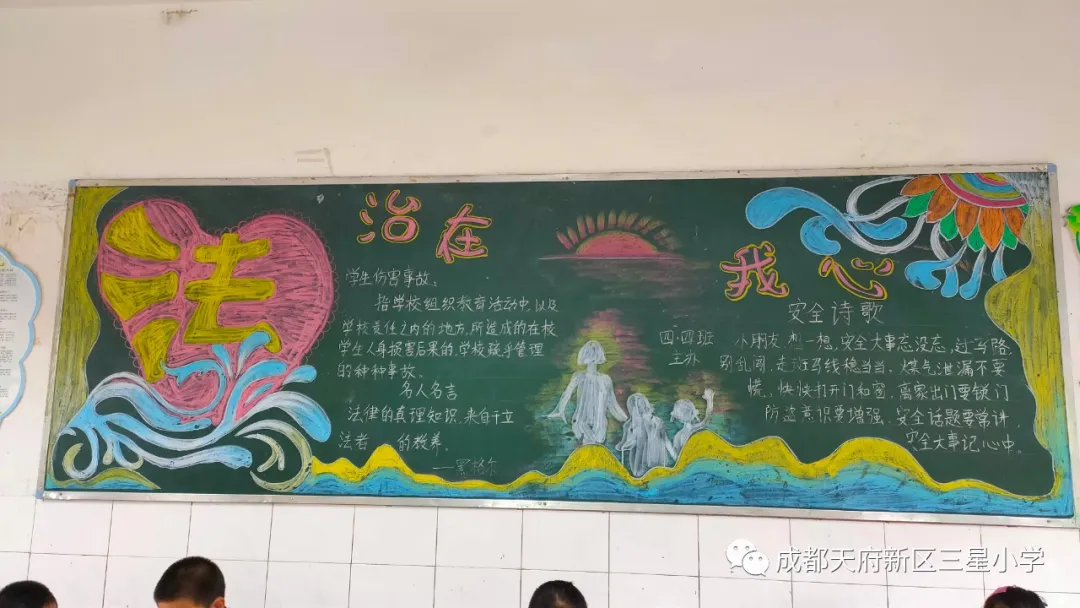 法
治在
我心
学生伤害事故:
指学校组织教育活动中,以及
学校责任之内的地方,所造成的在校
学生人身损害后果的,学校疏乎管理
的种种事故。
名人名言
法律的真理知识,来自于立
法者 的教养。
——黑格尔
四·四班
主办
安全诗歌
小朋友,想一想,安全大事忘没忘,过马路,
别乱闯,走斑马线稳当当,煤气泄漏不要
慌,快快打开门和窗,离家出门要锁门
防盗意识要增强,安全话题要常讲,
安全大事记心中。
成都天府新区三星小学